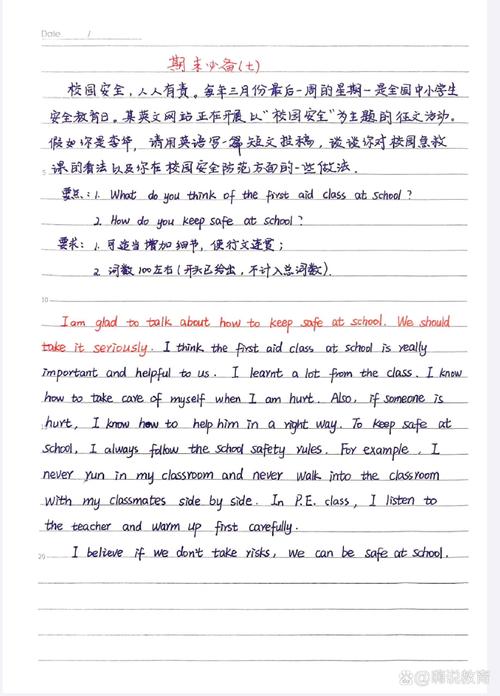 Date / /
期末必备(七)
校园安全,人人有责。每年三月份最后一周的星期一是全国中小学生
安全教育日。某英文网站正在开展以"校园安全"为主题的征文活动。
假如你是李华,请用英语写一篇短文投稿,谈谈你对校园急救
5
课的看法以及你在校园安全防范方面的一些做法.
要点:1. What do you think of the first aid class at school?
2. How do you keep safe at school?
要求:1.可适当增加细节,使行文连贯;
2.词数100左右(开头已给出,不计入总词数).
10
I am glad to talk about how to keep safe at school. We should
take it seriously. I think the first aid class at school is really
important and helpful to us. I learnt a lot from the class. I know
how to take care of myself when I am hurt. Also, if someone is
hurt, I know how to help him in a right way. To keep safe at
school, I always follow the school safety rules. For example, I
never run in my classroom and never walk into the classroom
with my classmates side by side. In P.E. class, I listen to
the teacher and warm up first carefully.
20
I believe if we don't take risks, we can be safe at school.
萌说教育